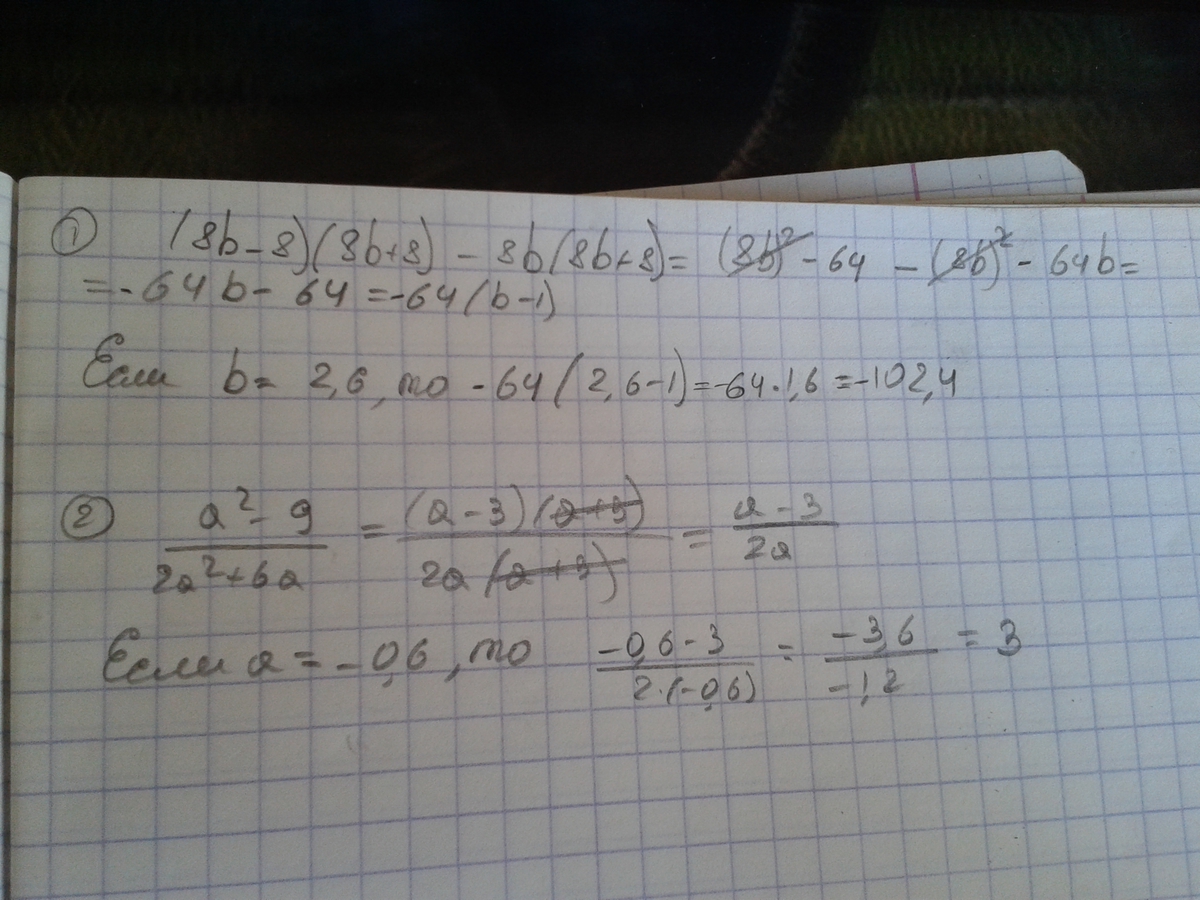 ① (8b-8)(8b+8) - 8b(8b+8) = (8b)² - 64 - (8b)² - 64b =
= -64b - 64 = -64(b-1)
Если b = 2,6, то -64(2,6-1) = -64·1,6 = -102,4
② a²-9 / 2a²+6a = (a-3)(a+3) / 2a(a+3) = a-3 / 2a
Если a = -0,6, то -0,6-3 / 2·(-0,6) = -3,6 / -1,2 = 3